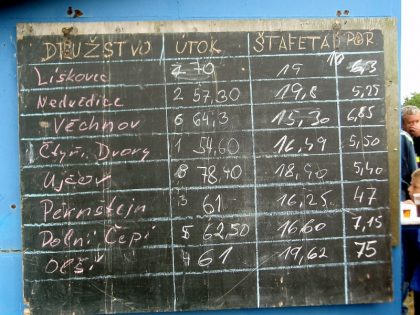 DRUŽSTVO ÚTOK ŠTAFETA POŘ
Lískovec 7 70 19
Nedvědice 2 57,30 19,8 5,25
Věchnov 6 64,3 15,30 6,85
Čtyři Dvory 1 54,60 16,49 5,50
Ujčov 8 78,40 18,90 5,40
Pernštejn 3 61 16,25 47
Dolní Čepí 5 62,50 16,60 7,15
Olší 4 61 19,62 75